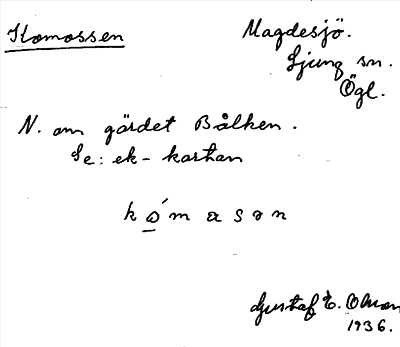 Komossen
Magdesjö.
Ljung sn.
Ögl.
N. om gärdet Bålken.
Se: ek-kartan
kǫ́masən
Gustaf E. Olson
1936.